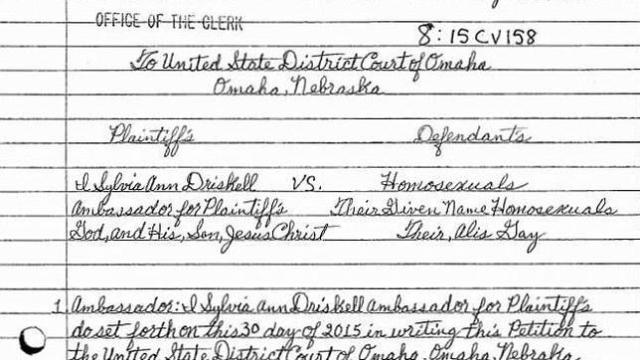 OFFICE OF THE CLERK
8:15CV158
To United State District Court of Omaha
Omaha, Nebraska
Plaintiff's Defendants
I Sylvia Ann Driskell VS. Homosexuals
Ambassador for Plaintiff's Their Given Name Homosexuals
God, and His, Son, Jesus Christ Their, Alis Gay
1 Ambassador: I Sylvia Ann Driskell Ambassador for Plaintiff's
do set forth on this 30 day of 2015 in writing this Petition to
the United State District Court of Omaha, Omaha, Nebraska